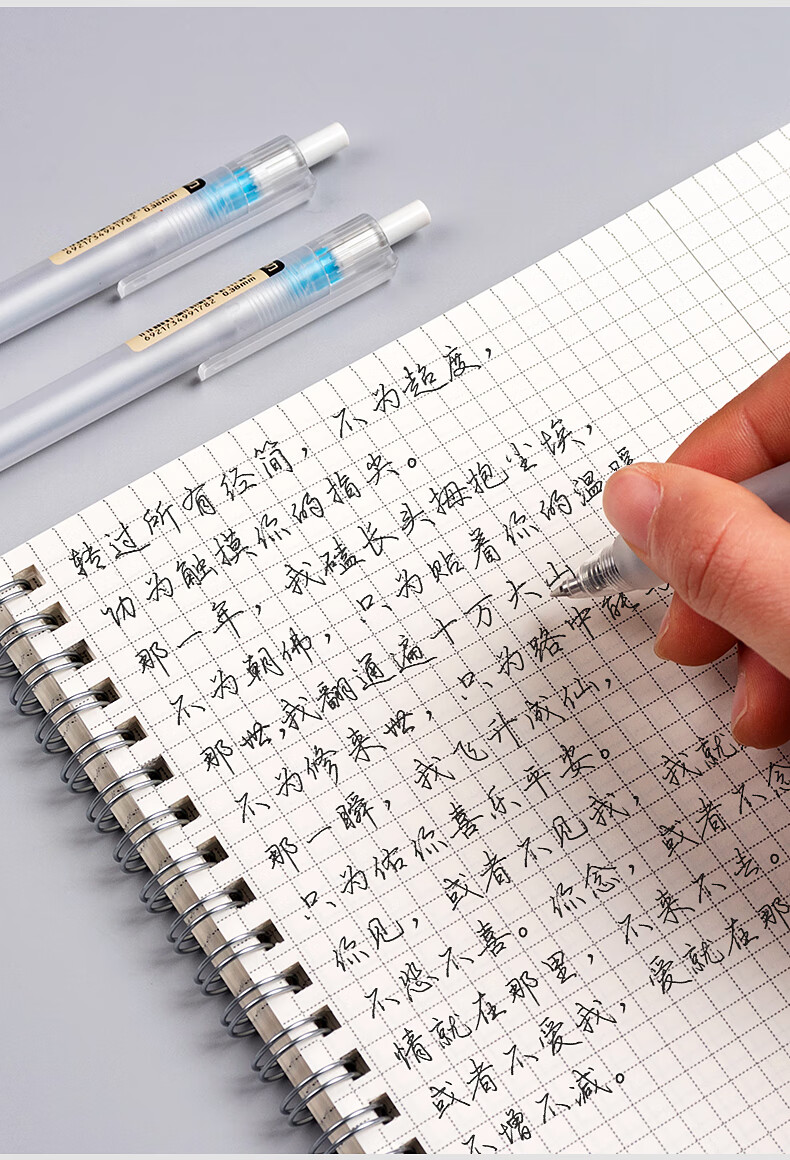 6921734991782 0.38mm
6921734991782 0.38mm
转过所有经简，不为超度，
为触摸你的指尖。
那一年，我磕长头拥抱尘埃，
不为朝佛，只为贴着你的温暖
那世，我翻遍十万大山
不为修来世，只为路中能
那一瞬，我飞升成仙，
只为佑你喜乐平安。
你见，或者不见我，我就
不怨不喜。你念，或者不念
情就在那里，不来不去。
或者不爱我，爱就在那
不增不减。